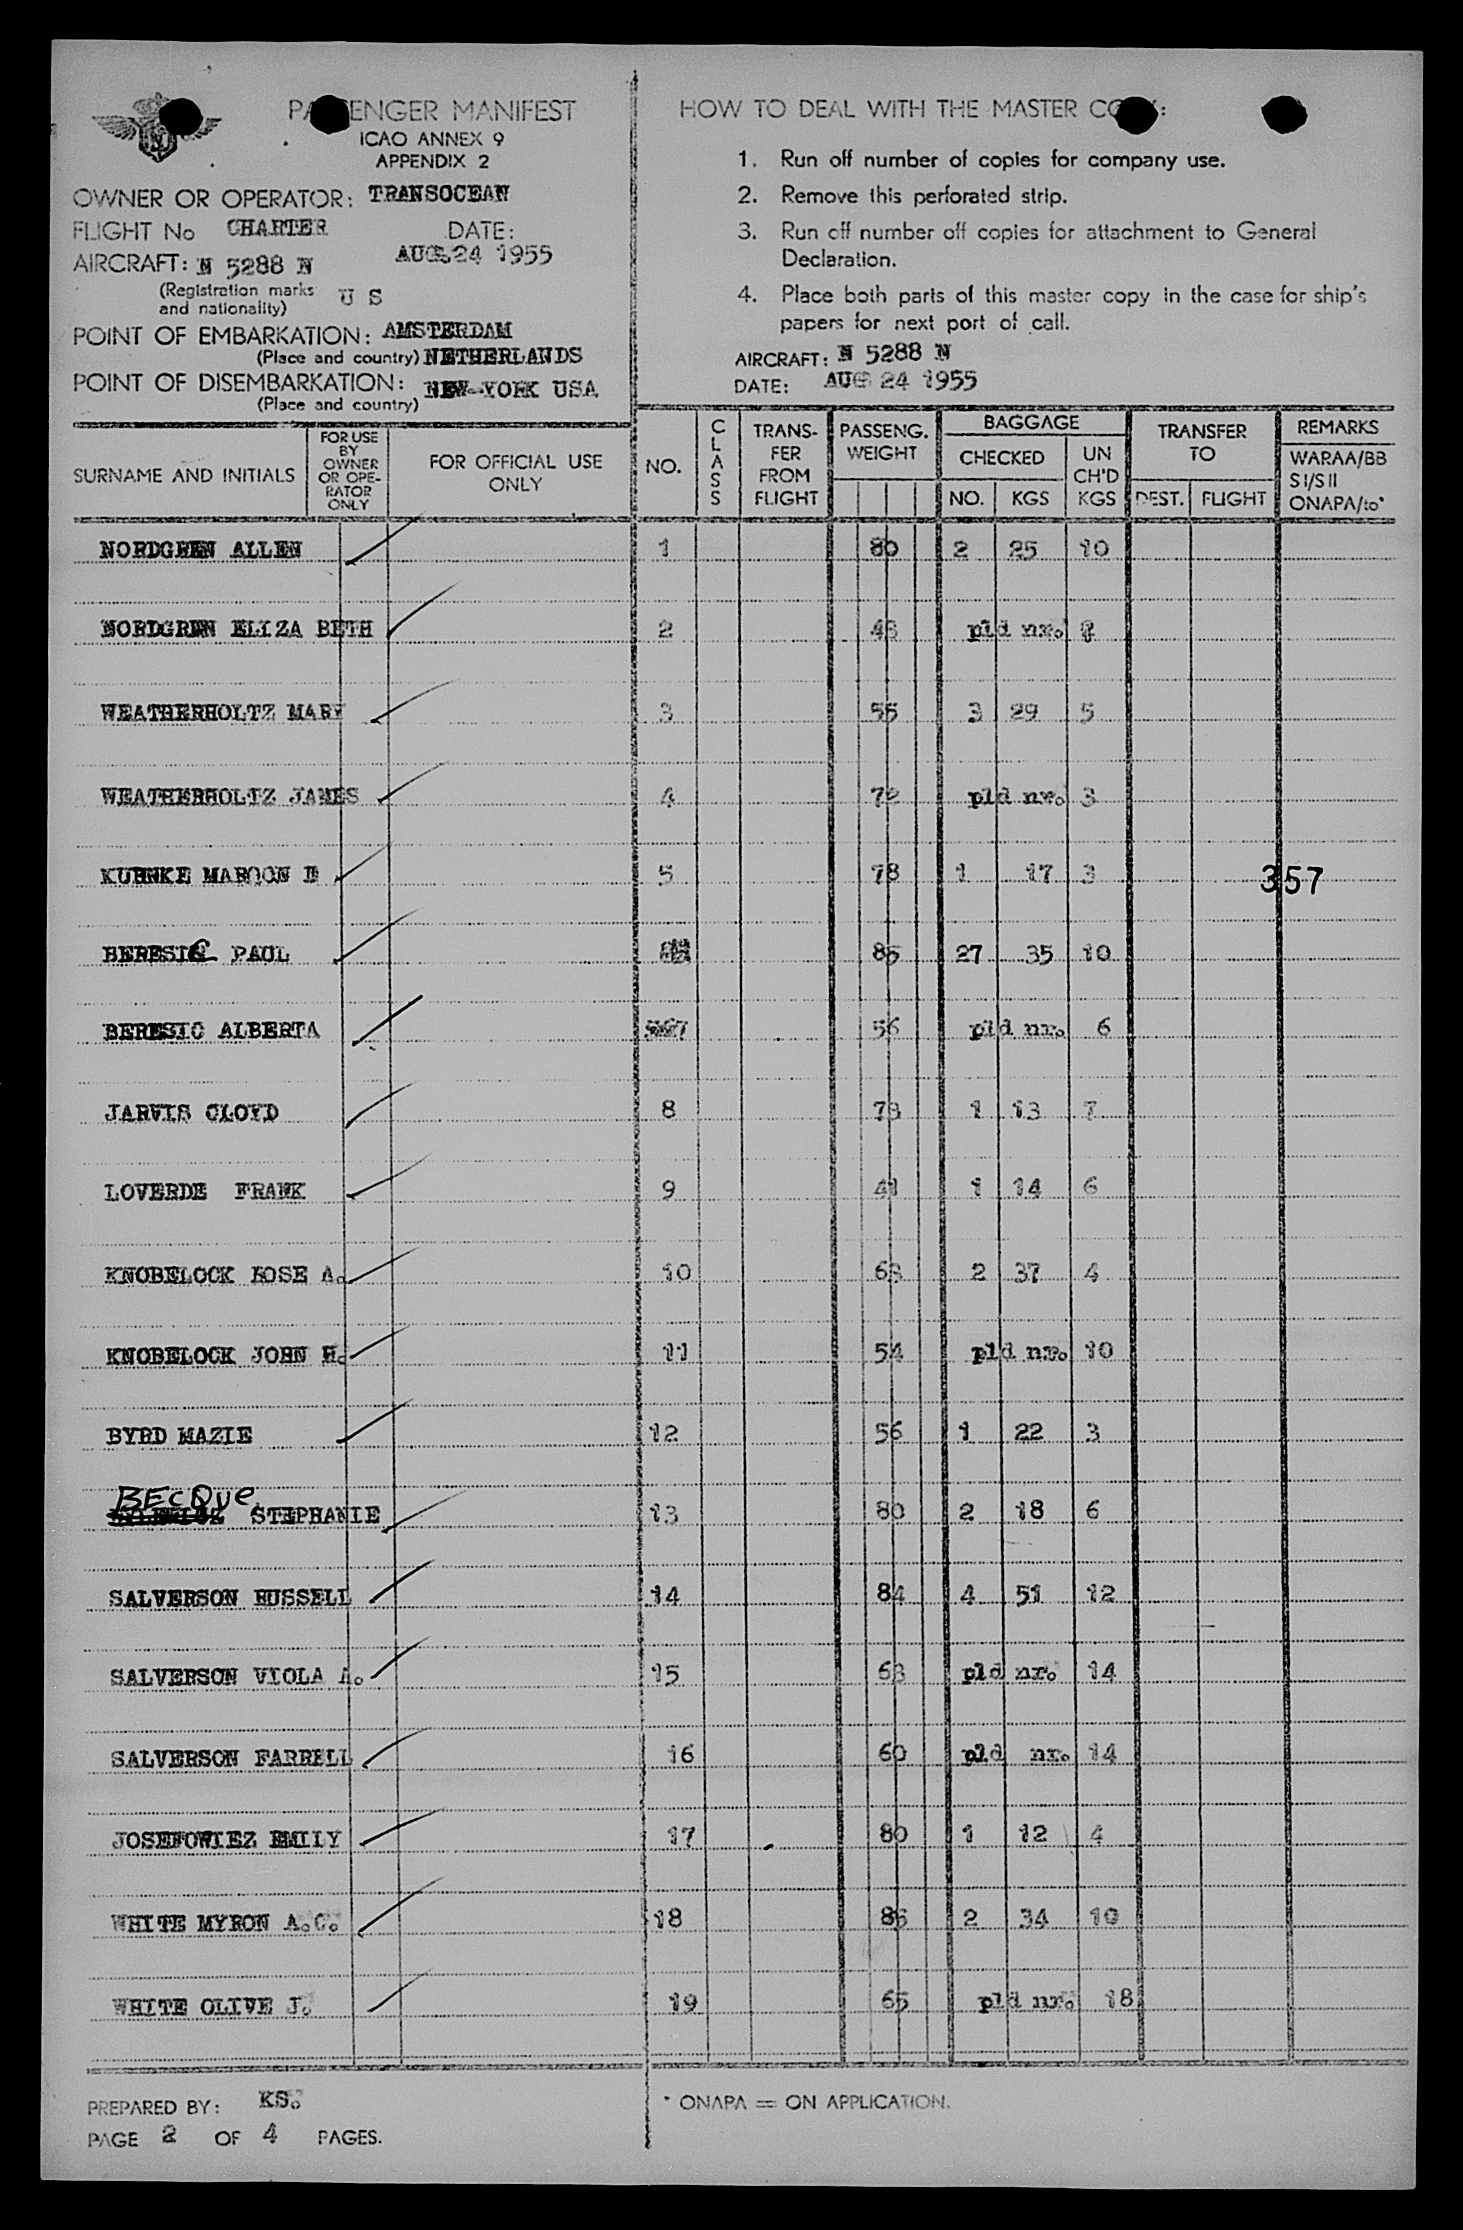 PASSENGER MANIFEST
ICAO ANNEX 9
APPENDIX 2
OWNER OR OPERATOR: TRANSOCEAN
FLIGHT No CHARTER DATE:
AUG.24 1955
AIRCRAFT: N 5288 N
(Registration marks and nationality) U S
POINT OF EMBARKATION: AMSTERDAM
(Place and country) NETHERLANDS
POINT OF DISEMBARKATION: NEW-YORK USA
(Place and country)
HOW TO DEAL WITH THE MASTER COPY:
1. Run off number of copies for company use.
2. Remove this perforated strip.
3. Run off number off copies for attachment to General
Declaration.
4. Place both parts of this master copy in the case for ship's
papers for next port of call.
AIRCRAFT: N 5288 N
DATE: AUG 24 1955
SURNAME AND INITIALS
FOR USE BY OWNER OR OPE-RATOR ONLY
FOR OFFICIAL USE ONLY
NO.
CLASS
TRANS-FER FROM FLIGHT
PASSENG. WEIGHT
BAGGAGE
CHECKED
NO. KGS
UN CH'D KGS
TRANSFER TO
DEST. FLIGHT
REMARKS
WARAA/BB
S I/S II
ONAPA/to*
NORDGREN ALLEN 1 80 2 25 10
NORDGREN ELIZA BETH 2 48 pld nr.
WEATHERHOLTZ MARY 3 55 3 29 5
WEATHERHOLTZ JAMES 4 72 pld nr. 3
KUHNKE MAROON 5 78 1 17 3
357
BERESIC PAUL 85 27 35 10
BERESIC ALBERTA 56 pld nr. 6
JARVIS CLOYD 8 78 1 13 7
LOVERDE FRANK 9 41 1 14 6
KNOBELOCK ROSE A. 10 63 2 37 4
KNOBELOCK JOHN H. 11 54 pld nr. 10
BYRD MAZIE 12 56 1 22 3
BECQUe STEPHANIE 13 80 2 18 6
SALVERSON RUSSELL 14 84 4 51 12
SALVERSON VIOLA A. 15 63 pld nr. 14
SALVERSON FARRELL 16 60 pld nr. 14
JOSEFOWIEZ EMILY 17 80 1 12 4
WHITE MYRON A.C. 18 86 2 34 10
WHITE OLIVE J. 19 65 pld nr. 18
PREPARED BY: KS.
PAGE 2 OF 4 PAGES.
* ONAPA = ON APPLICATION.